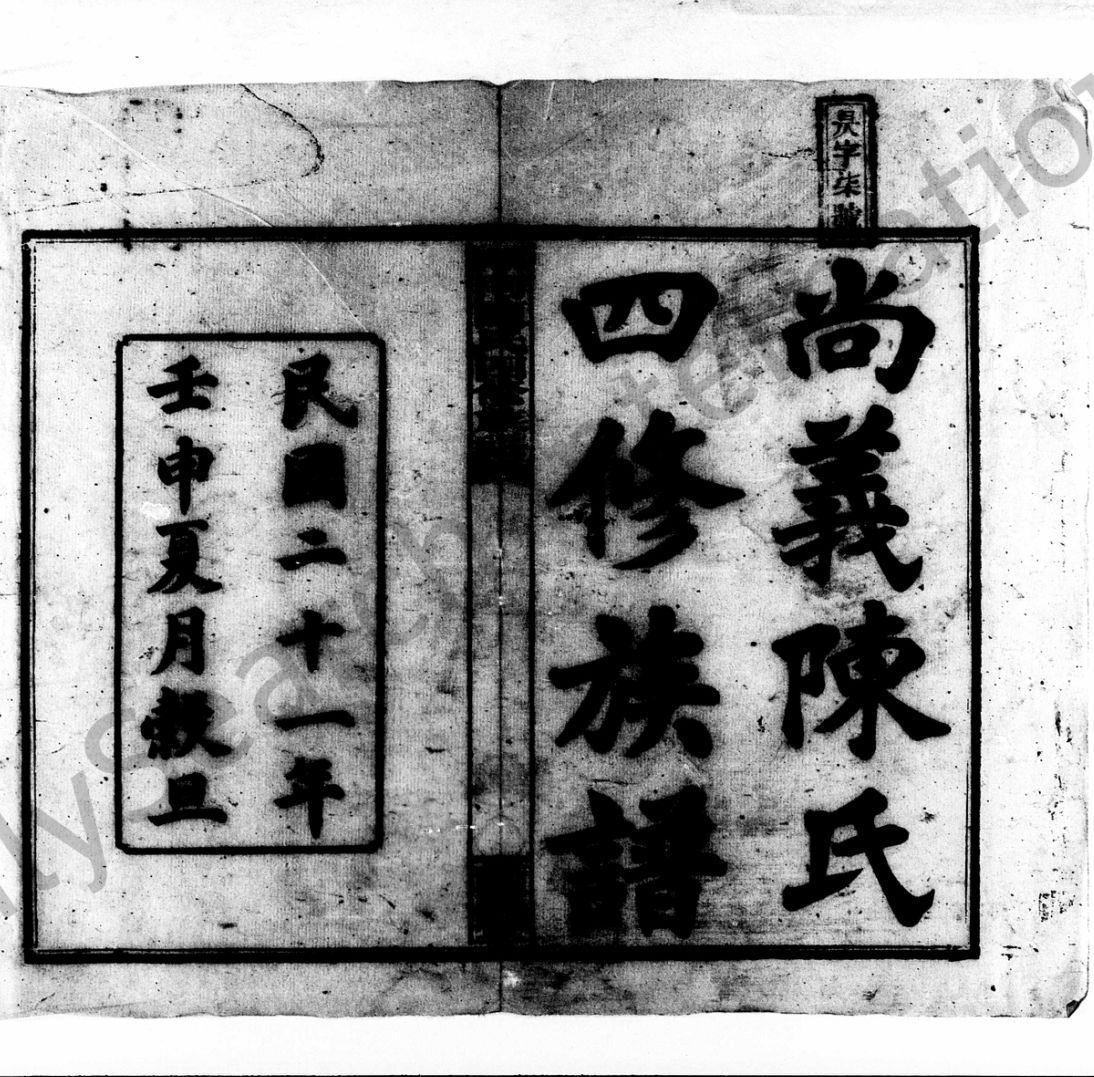 尚義陳氏
四修族譜
民國二十一年
壬申夏月穀旦
字柒號